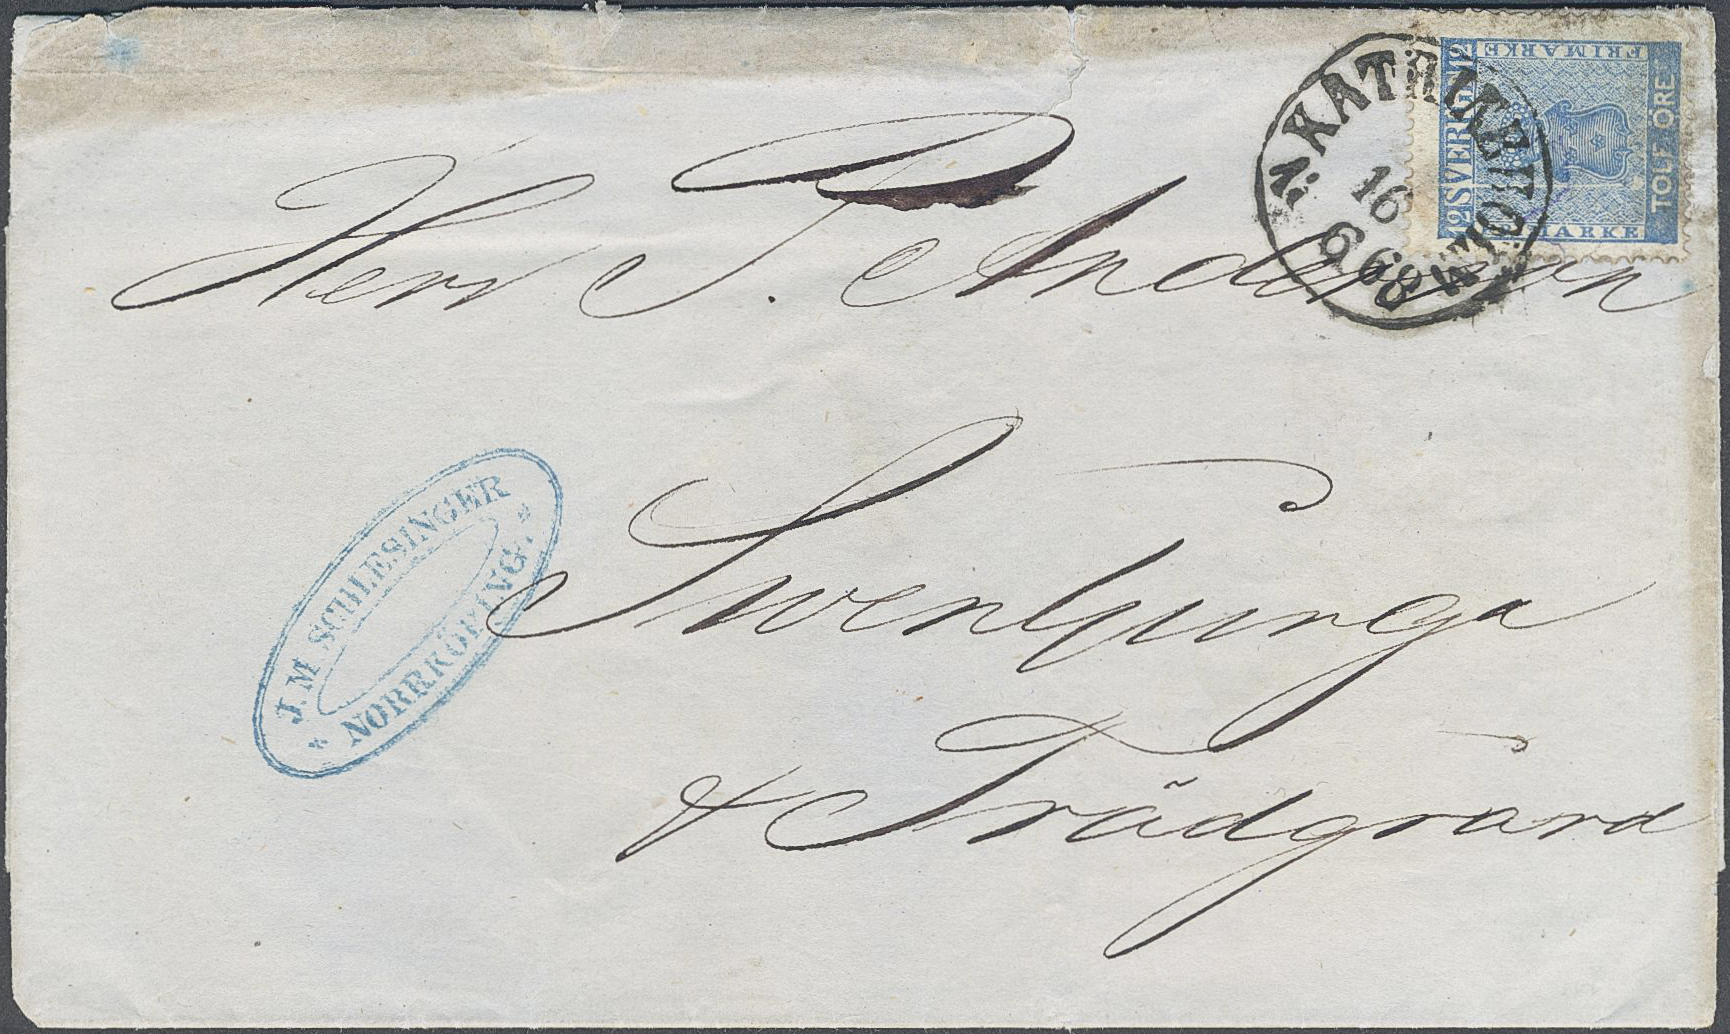 KATRINEHOLM
16
6
68
FRIMÄRKE
12 SVERIGE 12
TOLF ÖRE
FRIMÄRKE
Herr P. Anderson
Swenljunga
& Trädgrård
J. M. SCHLESINGER
* NORRKÖPING. *